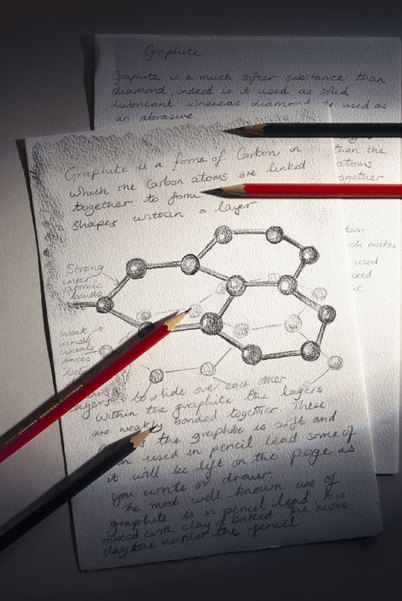 Graphite
Graphite is a much softer substance than
diamond, indeed is it used as solid
lubricant whereas diamond is used as
an abrasive
Graphite is a form of Carbon in
which the Carbon atoms are linked
together to form
shapes within a layer
than the
atoms
together
ch makes
used
Strong
inter
atomic
bonds
weak
forces
to slide over each other
Within the graphite the layers
are weakly bonded together These
the graphite is soft and
used in pencil lead some of
it will be left on the page as
you write or draw.
The most well known use of
graphite is in pencil lead. It is
mixed with clay & baked the more
clay the harder the pencil